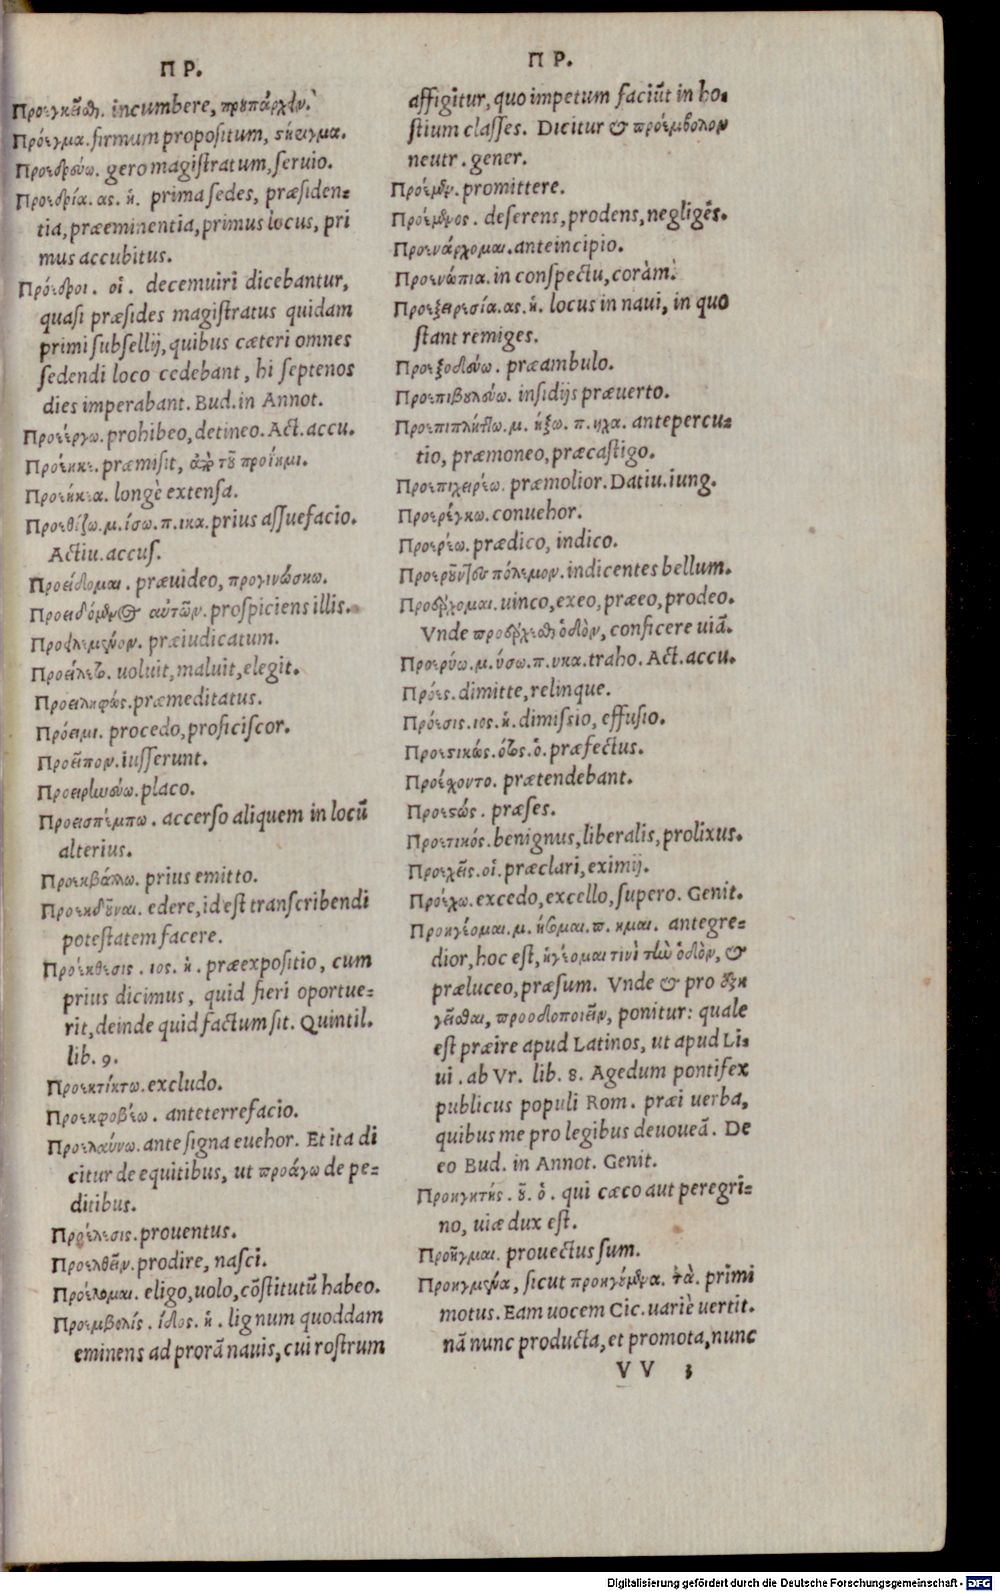 Π Ρ.
Προεγκεῖσθαι. incumbere, προυπάρχειν.
Πρόεγμα. firmum propositum, στήειγμα.
Προεδρεύω. gero magistratum, seruio.
Προεδρία. ας. ἡ. prima sedes, præsiden-
tia, præeminentia, primus locus, pri
mus accubitus.
Πρόεδροι. οἱ. decemuiri dicebantur,
quasi præsides magistratus quidam
primi subsellij, quibus cæteri omnes
sedendi loco cedebant, hi septenos
dies imperabant. Bud. in Annot.
Προείργω. prohibeo, detineo. Act. accu.
Προέηκε. præmisit, ἀπὸ τοῦ προΐημι.
Προεήκεα. longè extensa.
Προεθίζω. μ. ίσω. π. ικα. prius assuefacio.
Actiu. accus.
Προείδομαι. præuideo, προγινώσκω.
Προειδόμενος αὐτῶν. prospiciens illis.
Προειλεμένον. præiudicatum.
Προείλετο. uoluit, maluit, elegit.
Προειληφώς. præmeditatus.
Πρόειμι. procedo, proficiscor.
Προεῖπον. iusserunt.
Προειρηνεύω. placo.
Προεισπέμπω. accerso aliquem in locū
alterius.
Προεκβάλλω. prius emitto.
Προεκδοῦναι. edere, id est transcribendi
potestatem facere.
Προέκθεσις. ιος. ἡ. præexpositio, cum
prius dicimus, quid fieri oportue-
rit, deinde quid factum sit. Quintil.
lib. 9.
Προεκτίκτω. excludo.
Προεκφοβέω. anteterrefacio.
Προελαύνω. ante signa euehor. Et ita di
citur de equitibus, ut προάγω de pe-
ditibus.
Προέλεσις. prouentus.
Προελθεῖν. prodire, nasci.
Προέλομαι. eligo, uolo, cōstitutū habeo.
Προεμβολίς. ίδος. ἡ. lignum quoddam
eminens ad prorā nauis, cui rostrum
Π Ρ.
affigitur, quo impetum faciūt in ho-
stium classes. Dicitur & προέμβολον
neutr. gener.
Προέμεν. promittere.
Προέμενος. deserens, prodens, negligēs.
Προενάρχομαι. anteincipio.
Προενώπια. in conspectu, coràm.
Προεξειρεσία. ας. ἡ. locus in naui, in quo
stant remiges.
Προεξοδεύω. præambulo.
Προεπιβουλεύω. insidijs præuerto.
Προεπιπλήττω. μ. ήξω. π. ηχα. antepercu-
tio, præmoneo, præcastigo.
Προεπιχειρέω. præmolior. Datiu. iung.
Προερέγκω. conuehor.
Προερέω. prædico, indico.
Προεροῦντες πόλεμον. indicentes bellum.
Προέρχομαι. uinco, exeo, præeo, prodeo.
Vnde προέρχεσθαι ὁδὸν, conficere uiā.
Προερύω. μ. ύσω. π. υκα. traho. Act. accu.
Πρόες. dimitte, relinque.
Πρόεσις. ιος. ἡ. dimissio, effusio.
Προεστικώς. ότος. ὁ. præfectus.
Προέχοντο. prætendebant.
Προεστώς. præses.
Προετικός. benignus, liberalis, prolixus.
Προεχεῖς. οἱ. præclari, eximij.
Προέχω. excedo, excello, supero. Genit.
Προηγέομαι. μ. ήσομαι. π. ημαι. antegre-
dior, hoc est, ἡγέομαι τινὶ τὴν ὁδὸν, &
præluceo, præsum. Vnde & pro ἐξη
γεῖσθαι, προοδοποιεῖν, ponitur: quale
est præire apud Latinos, ut apud Li-
ui. ab Vr. lib. 8. Agedum pontifex
publicus populi Rom. præi uerba,
quibus me pro legibus deuoueā. De
eo Bud. in Annot. Genit.
Προηγητής. οῦ. ὁ. qui cæco aut peregri-
no, uiæ dux est.
Προῆγμαι. prouectus sum.
Προηγμένα, sicut προηγούμενα. τὰ. primi
motus. Eam uocem Cic. uariè uertit.
nā nunc producta, et promota, nunc
V V 3
Digitalisierung gefördert durch die Deutsche Forschungsgemeinschaft - DFG